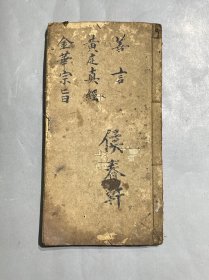 善言
黄庭真經
金華宗旨
侯春軒